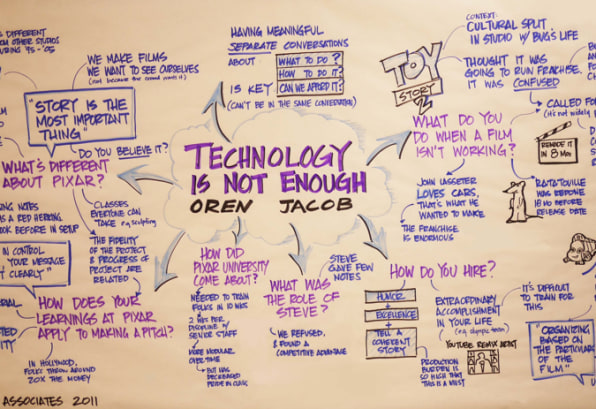 TECHNOLOGY
IS NOT ENOUGH
OREN JACOB
HAVING MEANINGFUL
SEPARATE CONVERSATIONS
ABOUT
WHAT TO DO?
HOW TO DO IT?
CAN WE AFFORD IT?
IS KEY
(CAN'T BE IN THE SAME CONVERSATION)
S DIFFERENT
OM OTHER STUDIOS
URING 95-'05
WE MAKE FILMS
WE WANT TO SEE OURSELVES
"STORY IS THE
MOST IMPORTANT
THING"
DO YOU BELIEVE IT?
WHAT'S DIFFERENT
ABOUT PIXAR?
CLASSES
EVERYONE CAN
TAKE e.g. sculpting
ING NOTES
IS A RED HERRING
OOK BEFORE IN SETUP
THE FIDELITY
OF THE PROJECT
& PROGRESS OF
PROJECT ARE
RELATED
IN CONTROL
YOUR MESSAGE
CLEARLY"
HOW DOES YOUR
LEARNINGS AT PIXAR
APPLY TO MAKING A PITCH?
IN HOLLYWOOD,
FOLKS THROW AROUND
20X THE MONEY
ASSOCIATES 2011
HOW DID
PIXAR UNIVERSITY
COME ABOUT?
NEEDED TO TRAIN
FOLKS IN 10 WKS
2 WKS PER
DISCIPLINE w/
SENIOR STAFF
MORE MODULAR
OVER TIME
BUT HAS
DECREASED
PRIDE IN CLASS
WHAT WAS
THE ROLE OF
STEVE?
STEVE
GAVE FEW
NOTES
WE REFUSED,
& FOUND A
COMPETITIVE ADVANTAGE
HOW DO YOU HIRE?
HUMOR
+
EXCELLENCE
+
TELL A
COHERENT
STORY
EXTRAORDINARY
ACCOMPLISHMENT
IN YOUR LIFE
(e.g. olympic team)
YOUTUBE REMIX ARTIST
PRODUCTION
BURDEN IS
SO HIGH THAT
THIS IS A MUST
IT'S DIFFICULT
TO TRAIN
FOR THIS
"ORGANIZING
BASED ON
THE PARTICULARS
OF THE
FILM"
TOY
STORY
2
CONTEXT:
CULTURAL SPLIT
IN STUDIO w/ BUG'S LIFE
THOUGHT IT WAS
GOING TO RUN FRANCHISE.
IT WAS CONFUSED
WHAT DO YOU
DO WHEN A FILM
ISN'T WORKING?
CALLED FO
(it's not widely
REMADE IT
IN 8 MON
JOHN LASSETER
LOVES CARS,
THAT'S WHAT HE
WANTED TO MAKE
THE FRANCHISE
IS ENORMOUS
RATATOUILLE
WAS REDONE
18 MO BEFORE
RELEASE DATE